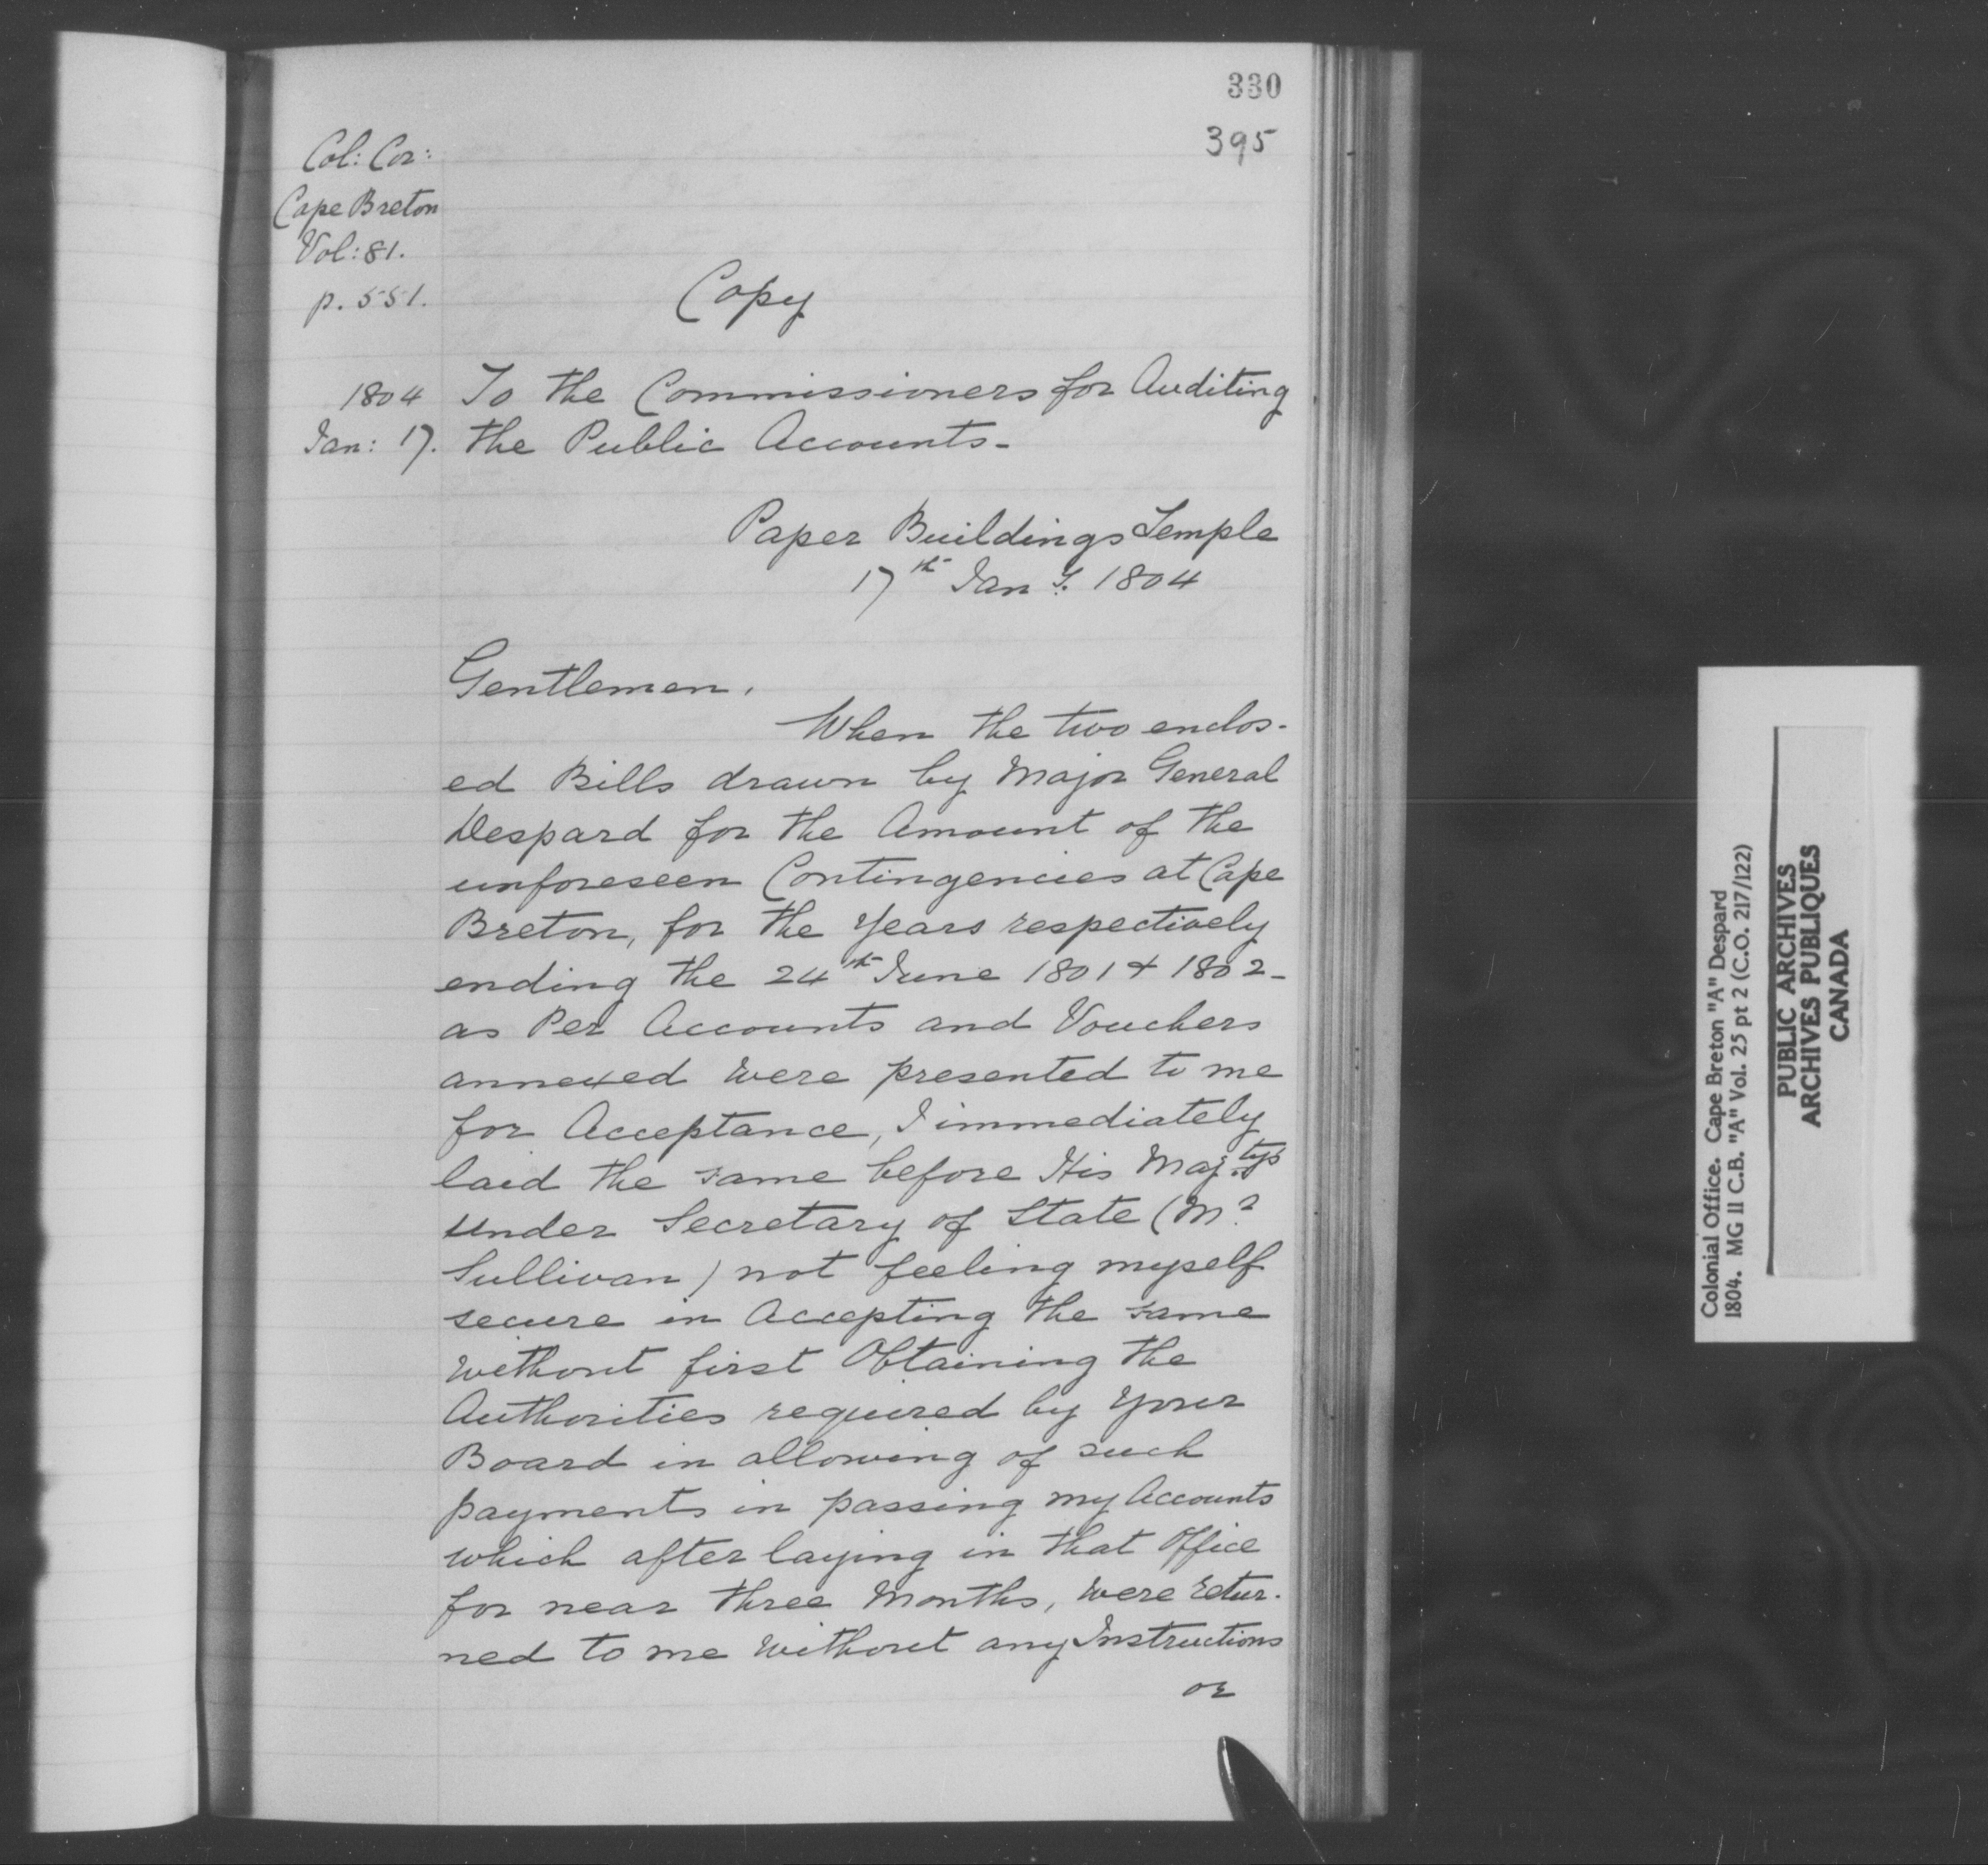 330
395
Col: Cor:
Cape Breton
Vol: 81.
p. 551.
Copy
1804
Jan: 17.
To the Commissioners for Auditing
the Public Accounts-
Paper Buildings Temple
17th Jany. 1804
Gentlemen,
When the two enclos-
ed Bills drawn by Major General
Despard for the Amount of the
unforeseen Contingencies at Cape
Breton, for the Years respectively
ending the 24th June 1801 + 1802-
as Per Accounts and Vouchers
annexed were presented to me
for Acceptance, I immediately
laid the same before His Maj.tys
Under Secretary of State (Mr
Sullivan) not feeling myself
secure in Accepting the same
without first Obtaining the
Authorities required by Your
Board in allowing of such
payments in passing my Accounts
which after laying in that Office
for near three Months, were retur-
ned to me without any Instructions
or
Colonial Office. Cape Breton "A" Despard
1804. MG II C.B. "A" Vol. 25 pt 2 (C.O. 217/122)
PUBLIC ARCHIVES
ARCHIVES PUBLIQUES
CANADA